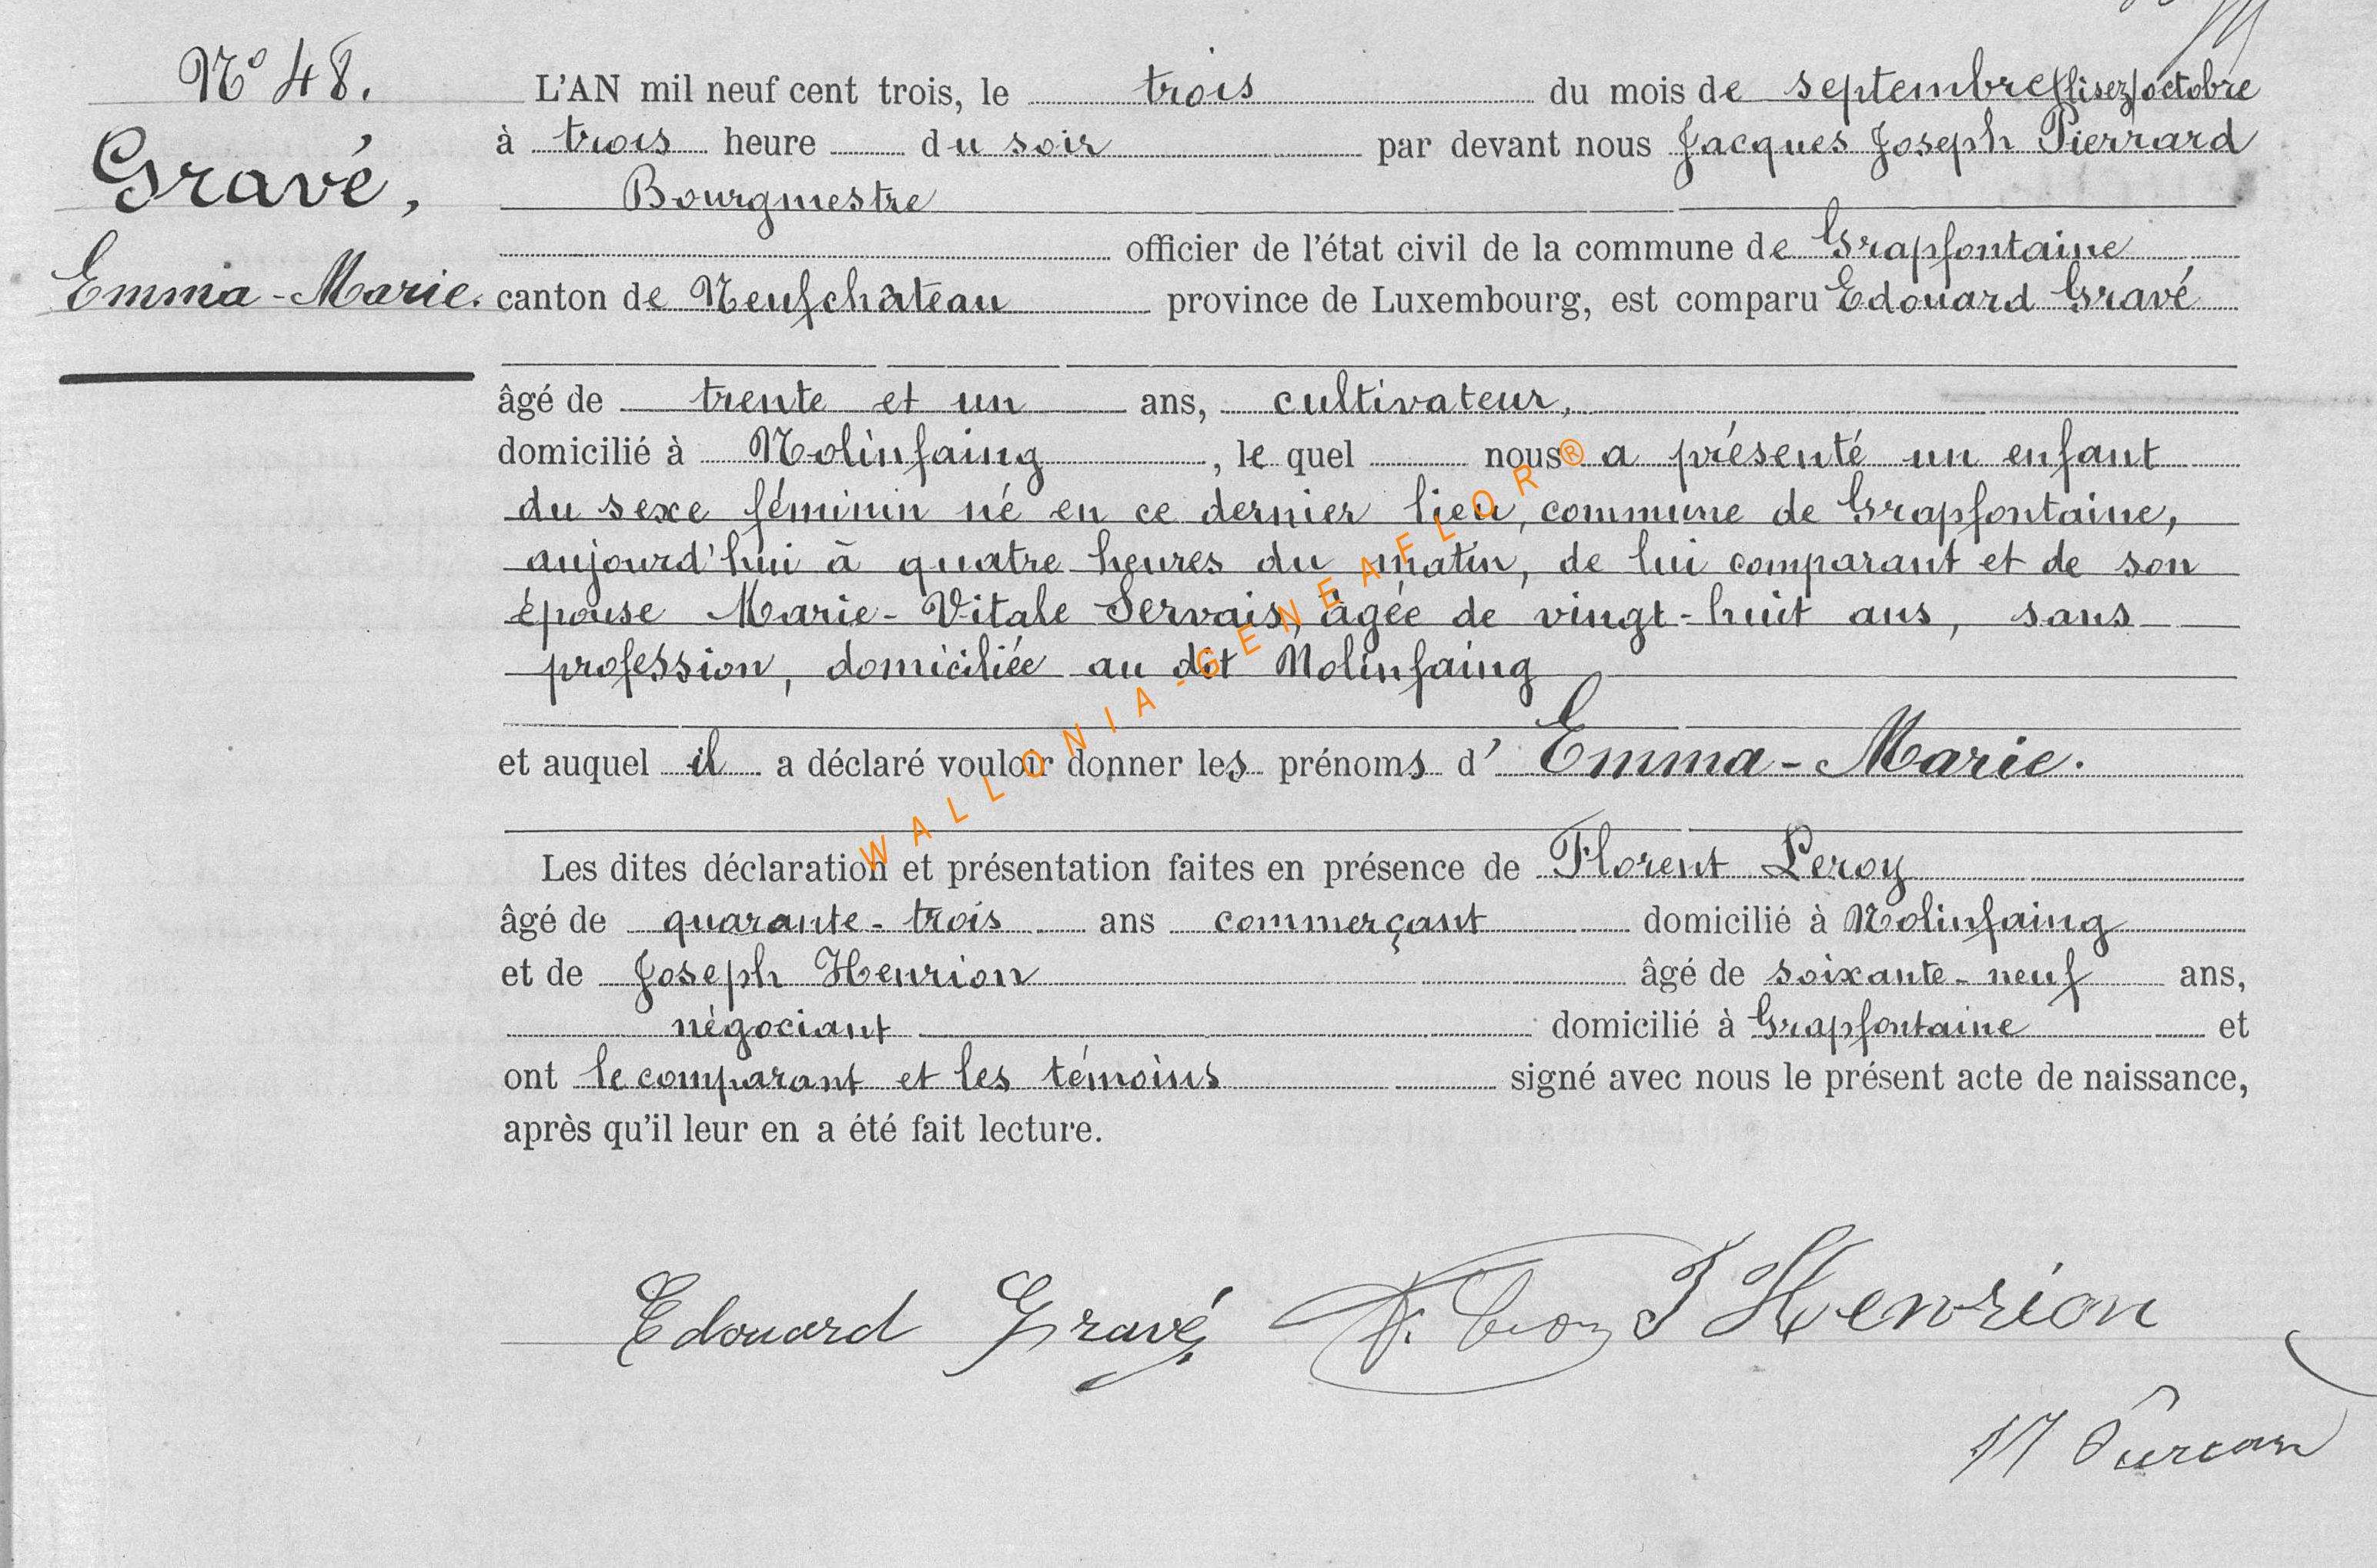 Nº 48.
Gravé,
Emma-Marie.
L'AN mil neuf cent trois, le trois du mois de septembre (lisez) octobre
à trois heure du soir par devant nous Jacques Joseph Pierrard
Bourgmestre
officier de l'état civil de la commune de Grapfontaine
canton de Neufchâteau province de Luxembourg, est comparu Edouard Gravé
âgé de trente et un ans, cultivateur,
domicilié à Nolinfaing, le quel nous a présenté un enfant
du sexe féminin né en ce dernier lieu, commune de Grapfontaine,
aujourd'hui à quatre heures du matin, de lui comparant et de son
épouse Marie-Vitale Servais, âgée de vingt-huit ans, sans
profession, domiciliée au dit Nolinfaing
et auquel il a déclaré vouloir donner les prénoms d' Emma-Marie.
Les dites déclaration et présentation faites en présence de Florent Leroy
âgé de quarante-trois ans commerçant domicilié à Nolinfaing
et de Joseph Henrion âgé de soixante-neuf ans,
négociant domicilié à Grapfontaine et
ont le comparant et les témoins signé avec nous le présent acte de naissance,
après qu'il leur en a été fait lecture.
WALLONIA-GENEAFLOR®
Edouard Gravé F. Leroy J Henrion